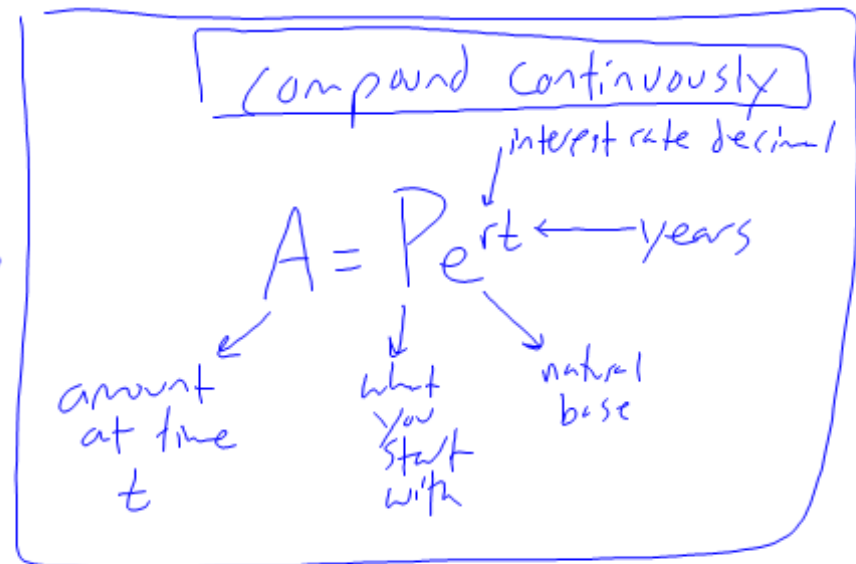 Compound Continuously
interest rate decimal
A = Pe^rt ← years
amount
at time
t
what
you
start
with
natural
base